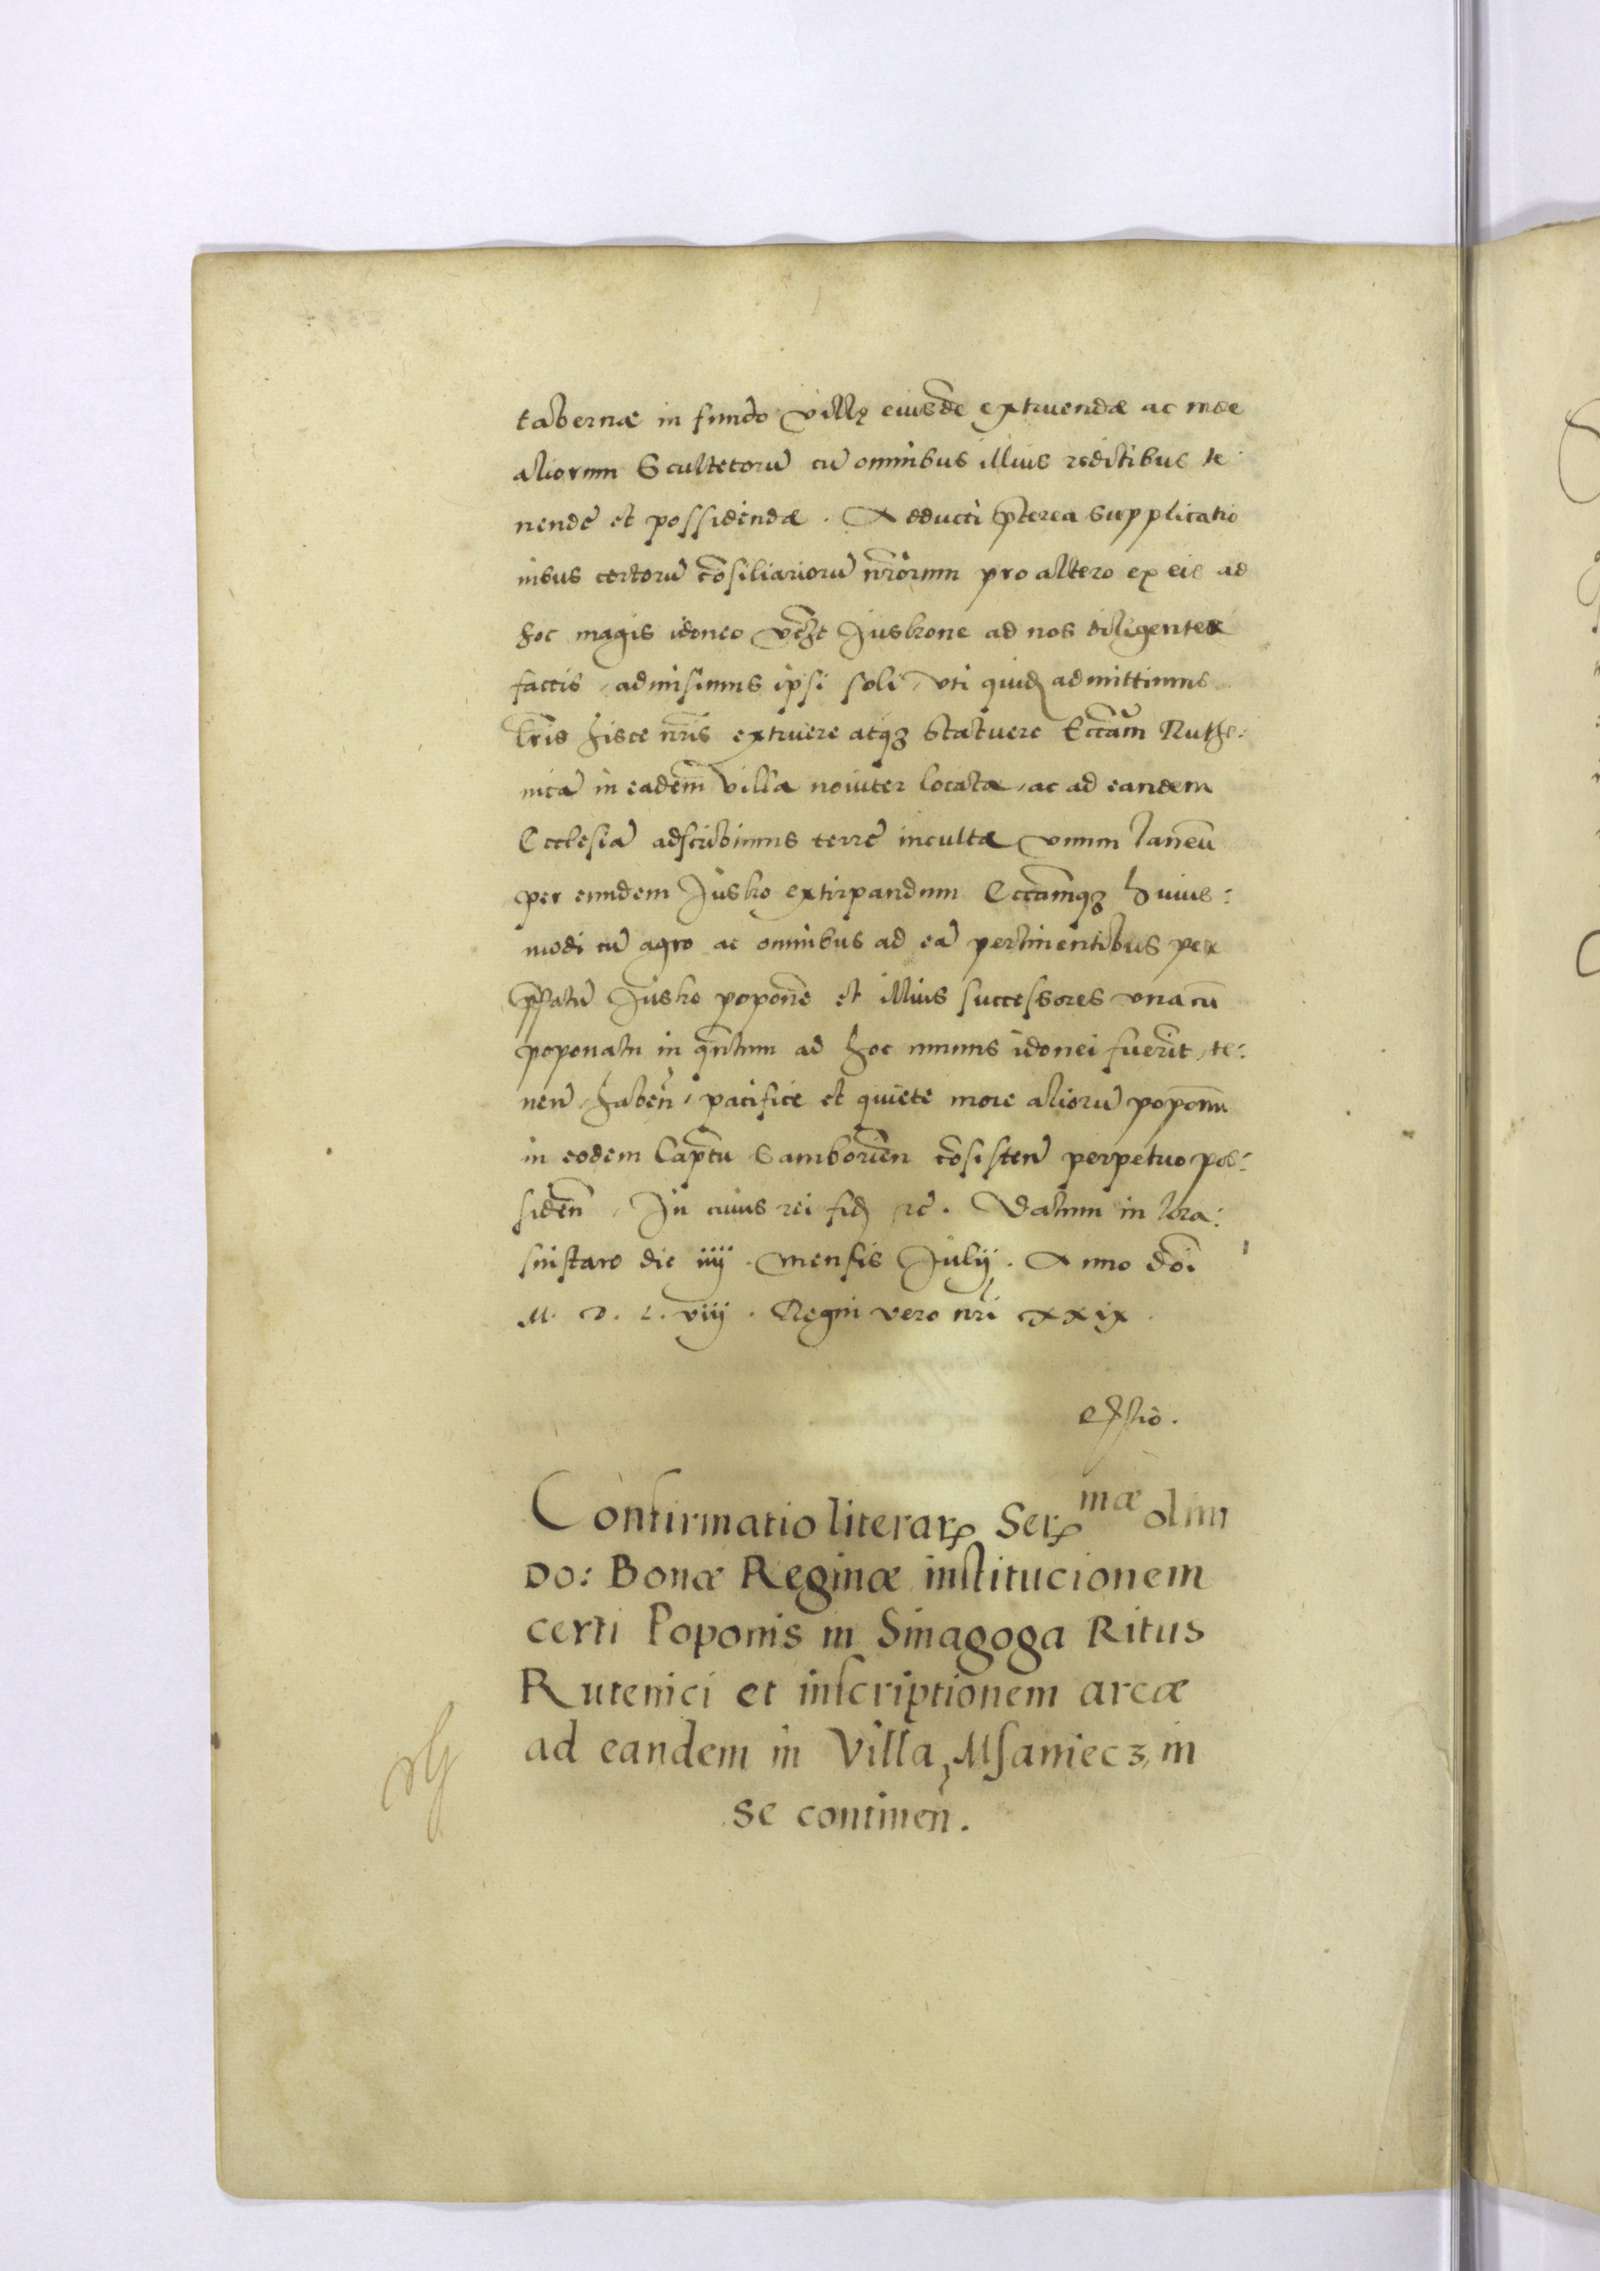 tabernæ in fundo villę eiusdē extruendæ ac more
aliorum Scultetorū cū omnibus illius reditibus te
nende et possidendæ. Adducti p̄terea supplicatio
nibus certorū cōsiliariorū nr̄orum pro altero ex eis ad
hoc magis idoneo vȝ Juskone ad nos diligenter
factis, admisimus ipsi soli, uti quidē admittimus
lr̄is hisce nr̄is extruere atqȝ statuere Eccām Ruthe:
nicā in eadem villa noviter locata, ac ad eandem
Ecclesiā adscribimus terrę incultæ vnum laneū
per eundem Jusko extirpandum Eccāmqȝ huius:
modi cū agro ac omnibus ad eā pertinentibus per
p̄fatū Jusko poponē et illius successores vna cū
poponatu in q̄ntum ad hoc munus idonei fuerīt, te:
nen̄, haben̄, pacifice et quiete more aliorū poponū
in eodem Capt̄u Samborien̄ cōsisten̄ perpetuo pos:
siden̄, In cuius rei fidē rc̄. Datum in Cra:
snistaro die iiij. mensis Julij. Anno doī
M. D. L. viij. Regni vero nr̄i xxix.
Confirmatio literarꝝ Serꝝ mæ olim
Do: Bonæ Reginæ institucionem
certi Poponis in Sinagoga Ritus
Rutenici et inscriptionem areæ
ad eandem in Villa Msaniecz in
se continen̄.